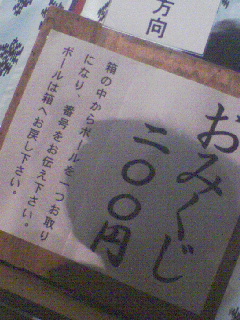 万向
おみくじ
二〇〇円
箱の中からボールを一つお取り
になり、番号をお伝え下さい。
ボールは箱へお戻し下さい。